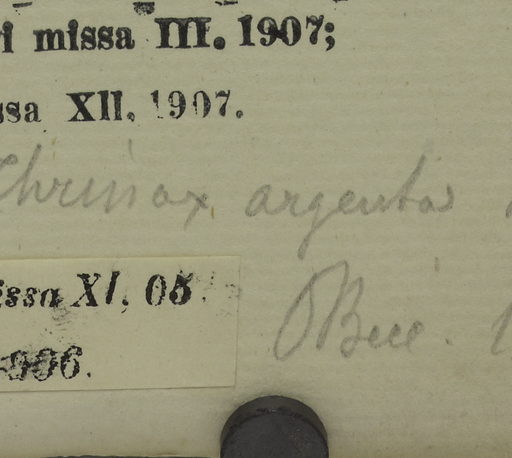 i missa III. 1907;
ssa XII. 1907.
Thrinax argentea
issa XI. 05.
1906.
O Becc.